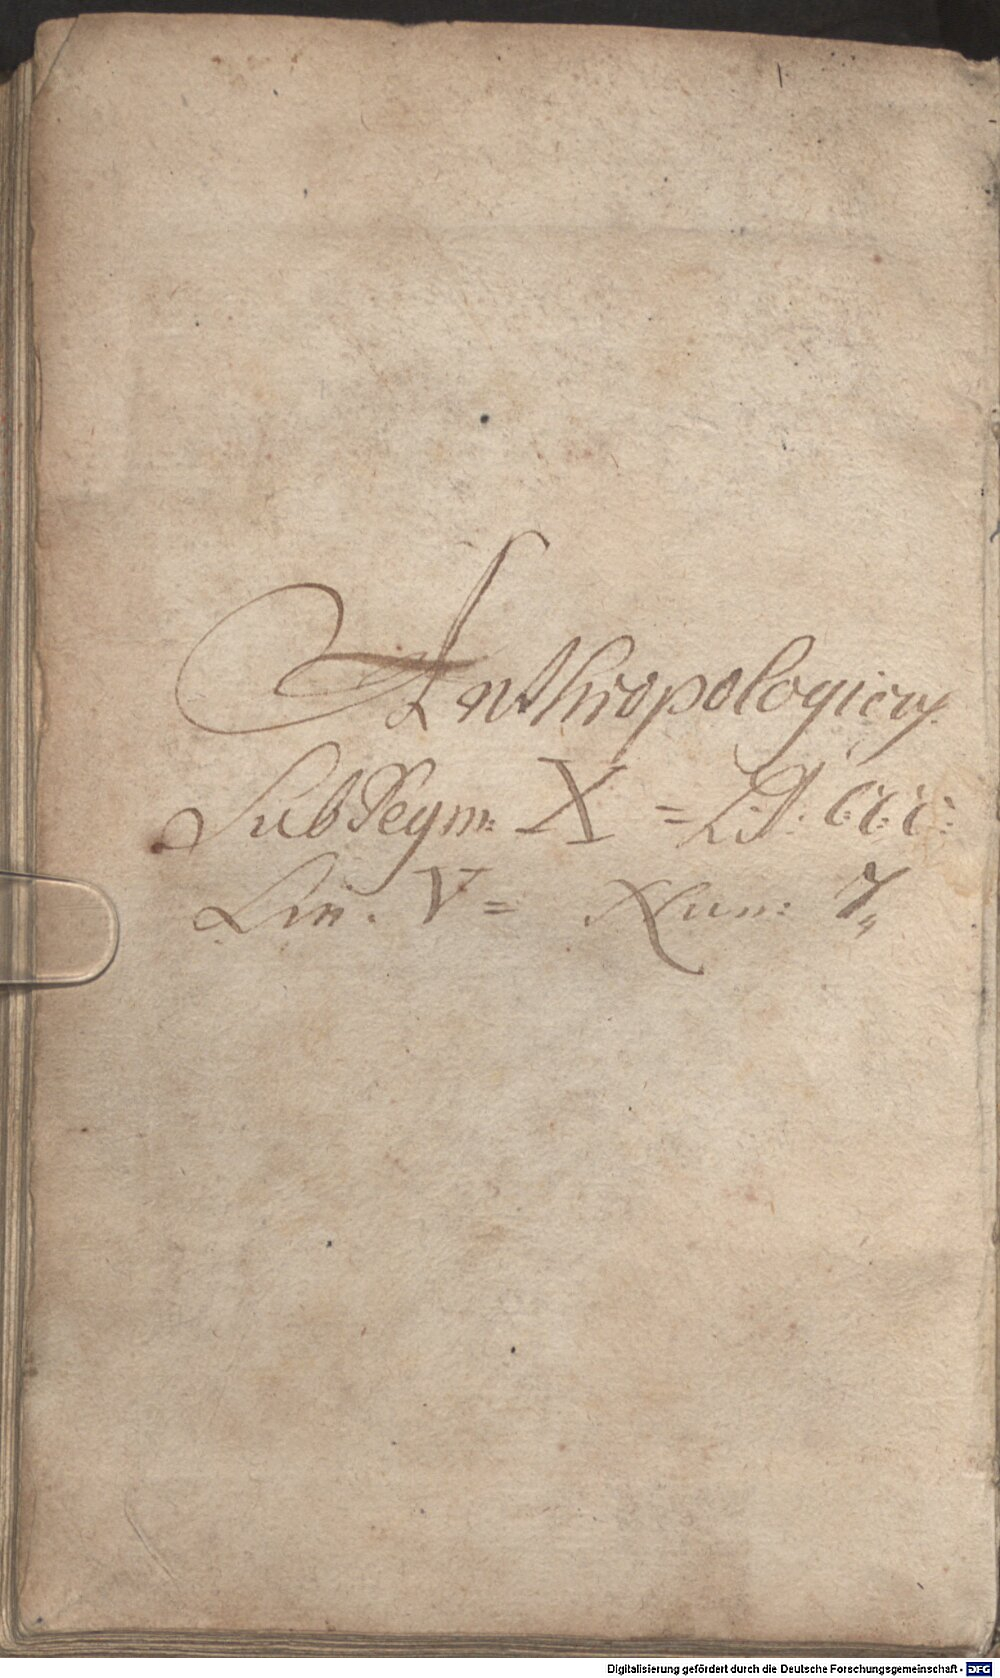 Anthropologicus
Sub Segm: X = Lit: c.c.c:
Lin. V = Num: 7,,
Digitalisierung gefördert durch die Deutsche Forschungsgemeinschaft - DFG